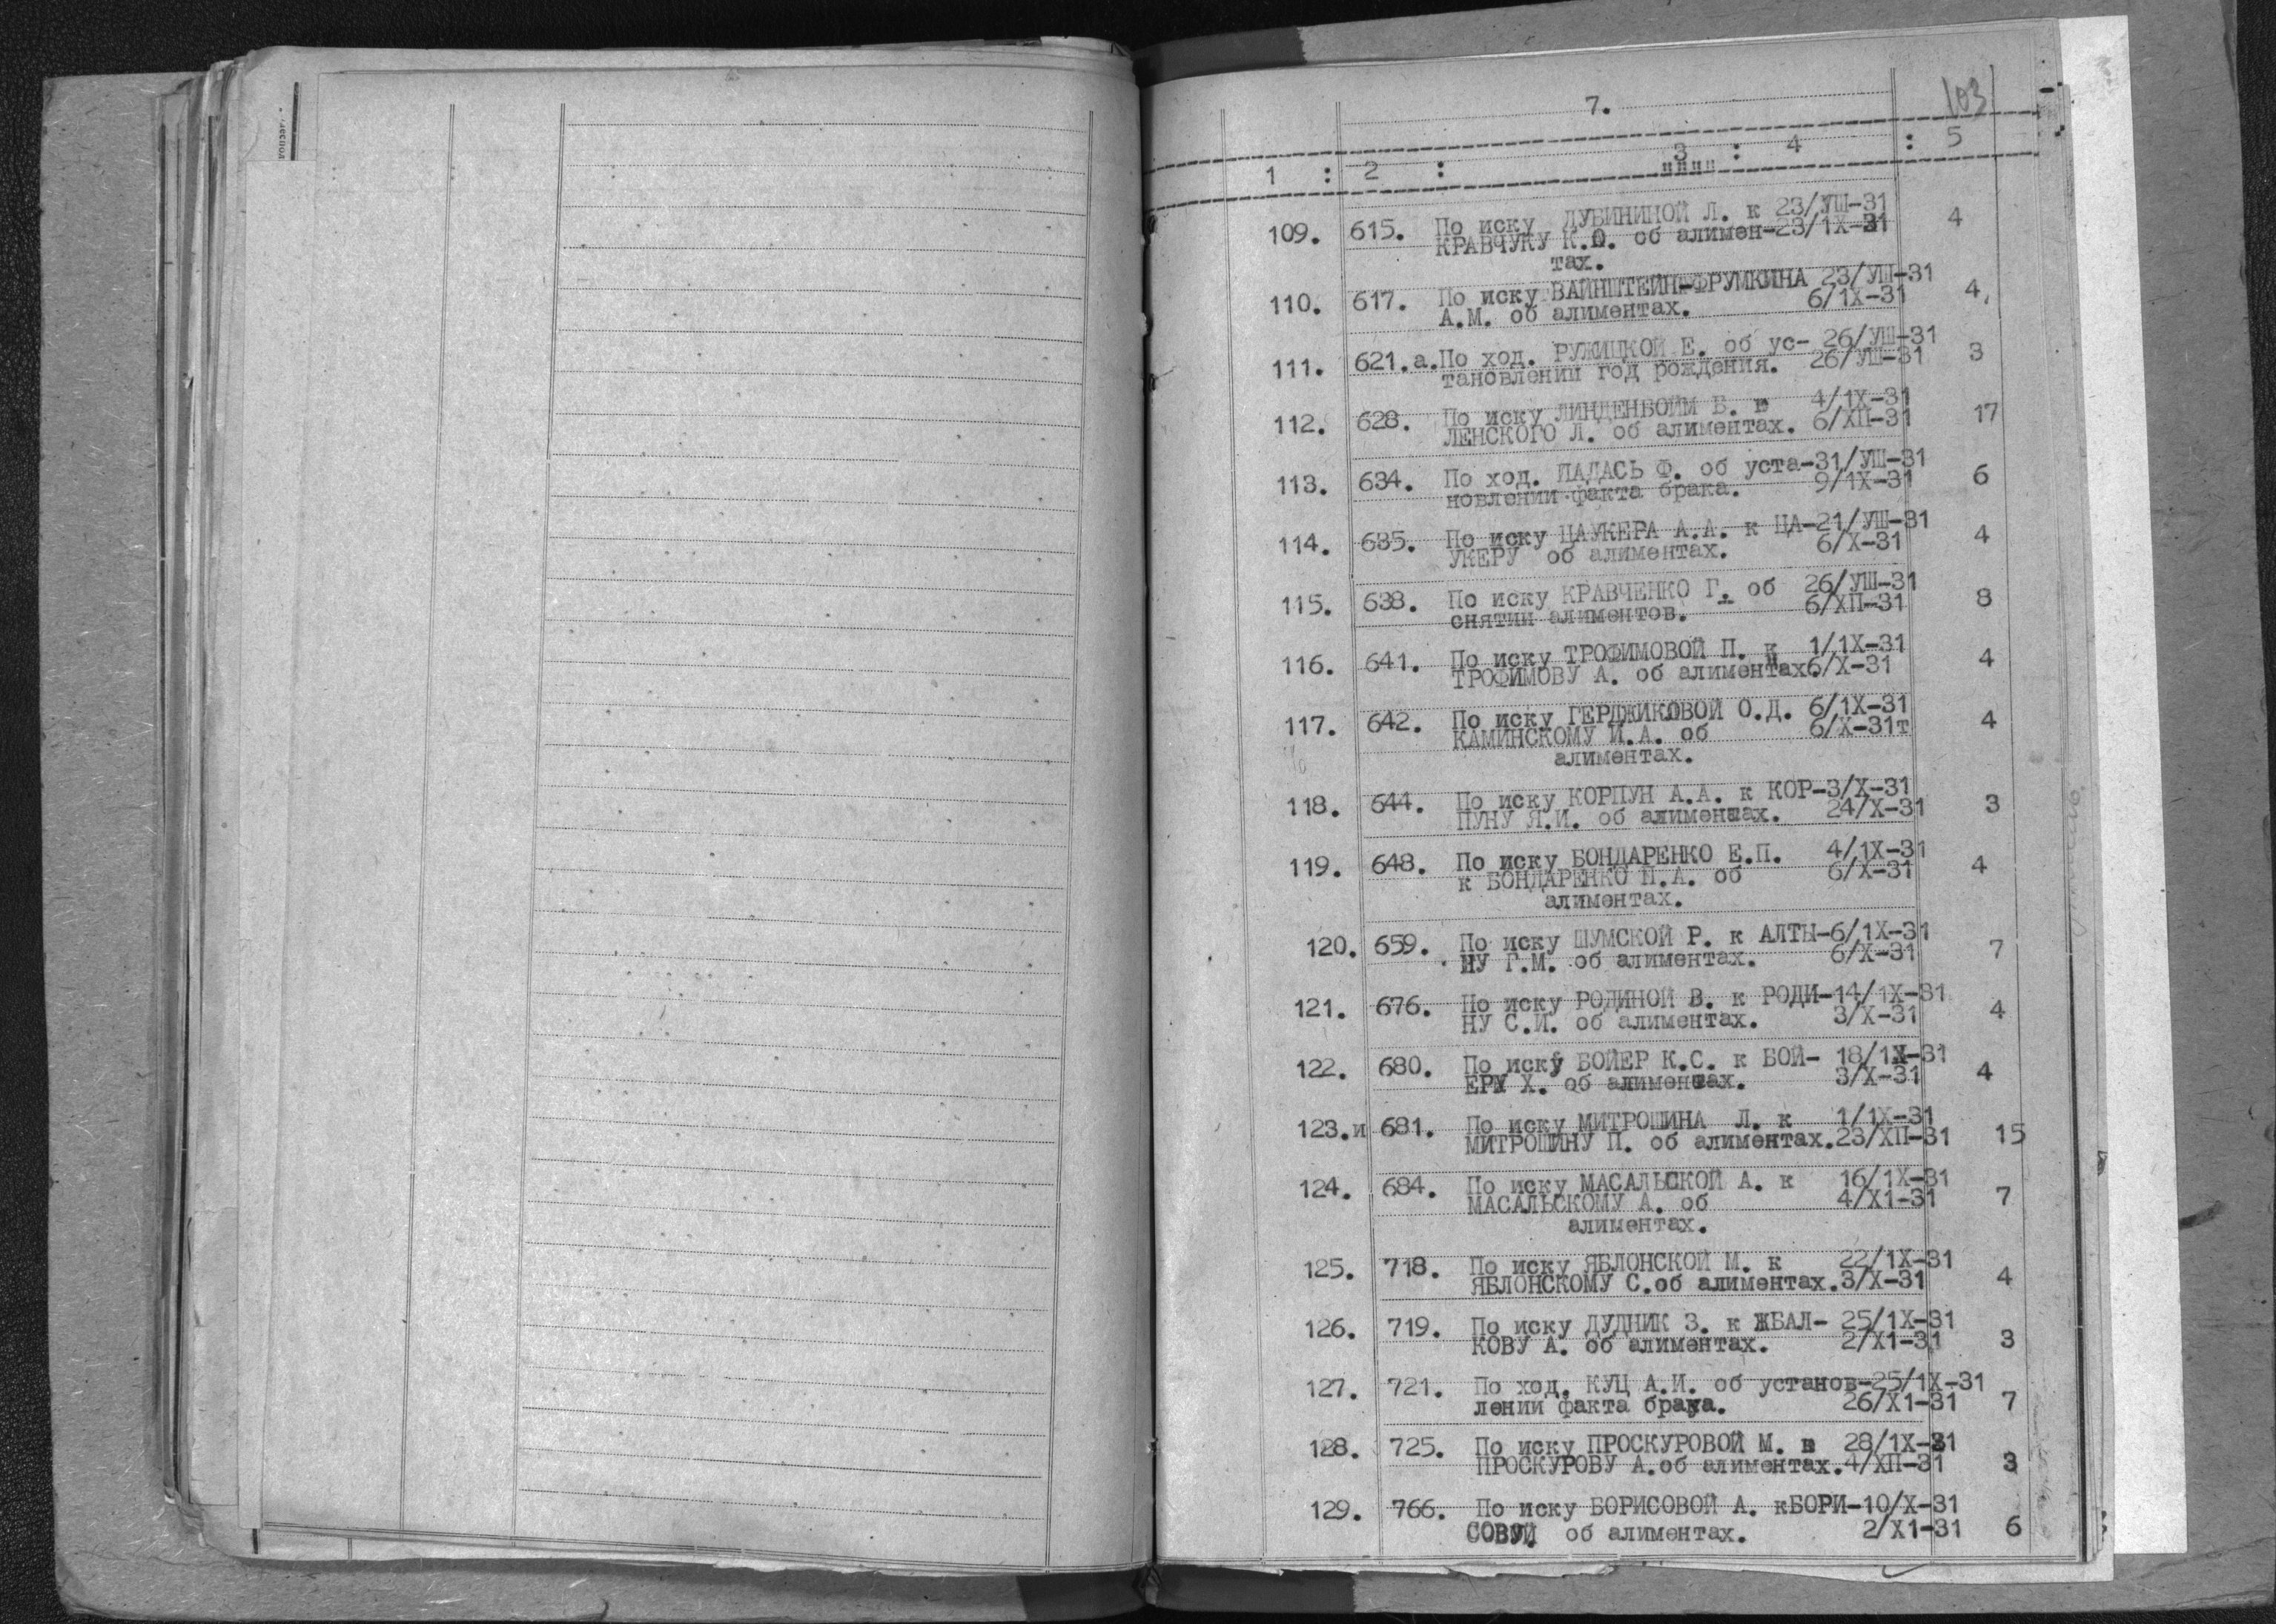 7.
103
1 : 2 : 3 : 4 : 5
109. 615. По иску ДУБИНИНОЙ Л. к 23/УШ-31 4
КРАВЧУКУ К.О. об алимен-23/1Х-31
тах.
110. 617. По иску ВАЙНШТЕЙН-ФРУМКИНА 23/УШ-31 4
А.М. об алиментах. 6/1Х-31
111. 621.а. По ход. РУЖИЦКОЙ Е. об ус- 26/УШ-31 3
тановлении год рождения. 26/УШ-31
112. 628. По иску ЛИНДЕНБОЙМ Б. в 4/1Х-31 17
ЛЕНСКОГО Л. об алиментах. 6/ХП-31
113. 634. По ход. ПАДАСЬ Ф. об уста-31/УШ-31 6
новлении факта брака. 9/1Х-31
114. 635. По иску ЦАУКЕРА А.А. к ЦА-21/УШ-31 4
УКЕРУ об алиментах. 6/Х-31
115. 638. По иску КРАВЧЕНКО Г. об 26/УШ-31 8
снятии алиментов. 6/ХП-31
116. 641. По иску ТРОФИМОВОЙ П. к 1/1Х-31 4
ТРОФИМОВУ А. об алиментах.6/Х-31
117. 642. По иску ГЕРДЖИКОВОЙ О.Д. 6/1Х-31 4
КАМИНСКОМУ И.А. об 6/Х-31т
алиментах.
118. 644. По иску КОРПУН А.А. к КОР-3/Х-31 3
ПУНУ Я.И. об алиментах. 24/Х-31
119. 648. По иску БОНДАРЕНКО Е.П. 4/1Х-31 4
к БОНДАРЕНКО П.А. об 6/Х-31
алиментах.
120. 659. По иску ШУМСКОЙ Р. к АЛТЫ-6/1Х-31 7
НУ Г.М. об алиментах. 6/Х-31
121. 676. По иску РОДИНОЙ В. к РОДИ-14/1Х-31 4
НУ С.И. об алиментах. 3/Х-31
122. 680. По иску БОЙЕР К.С. к БОЙ- 18/1Х-31 4
ЕРУ Х. об алиментах. 3/Х-31
123.и 681. По иску МИТРОШИНА Л. к 1/1Х-31 15
МИТРОШИНУ П. об алиментах.23/ХП-31
124. 684. По иску МАСАЛЬСКОЙ А. к 16/1Х-31 7
МАСАЛЬСКОМУ А. об 4/Х1-31
алиментах.
125. 718. По иску ЯБЛОНСКОЙ М. к 22/1Х-31 4
ЯБЛОНСКОМУ С.об алиментах.3/Х-31
126. 719. По иску ДУДНИК З. к ЖБАЛ- 25/1Х-31 3
КОВУ А. об алиментах. 2/Х1-31
127. 721. По ход. КУЦ А.И. об установ-25/1Х-31 7
лении факта брака. 26/Х1-31
128. 725. По иску ПРОСКУРОВОЙ М. в 28/1Х-31 3
ПРОСКУРОВУ А.об алиментах.4/ХП-31
129. 766. По иску БОРИСОВОЙ А. кБОРИ-10/Х-31 6
об алиментах. 2/Х1-31